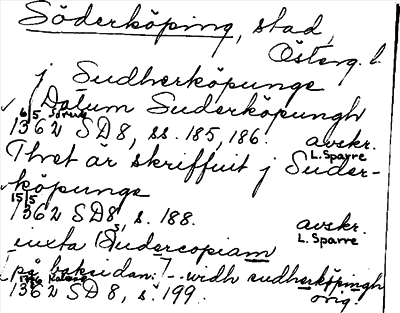 Söderköping, stad,
Österg. l.
j Sudherköpunge
Datum Suderköpungh
6/5
1362 SD 8, ss. 185, 186. avskr.
L. Sparre
Thet är skriffuit j Suder-
köpunge
15/5
1362 SD 8, s. 188. avskr.
L. Sparre
iuxta Sudercopiam
på baksidan: widh sudherköpingh
1362 SD 8, s. 199. orig.